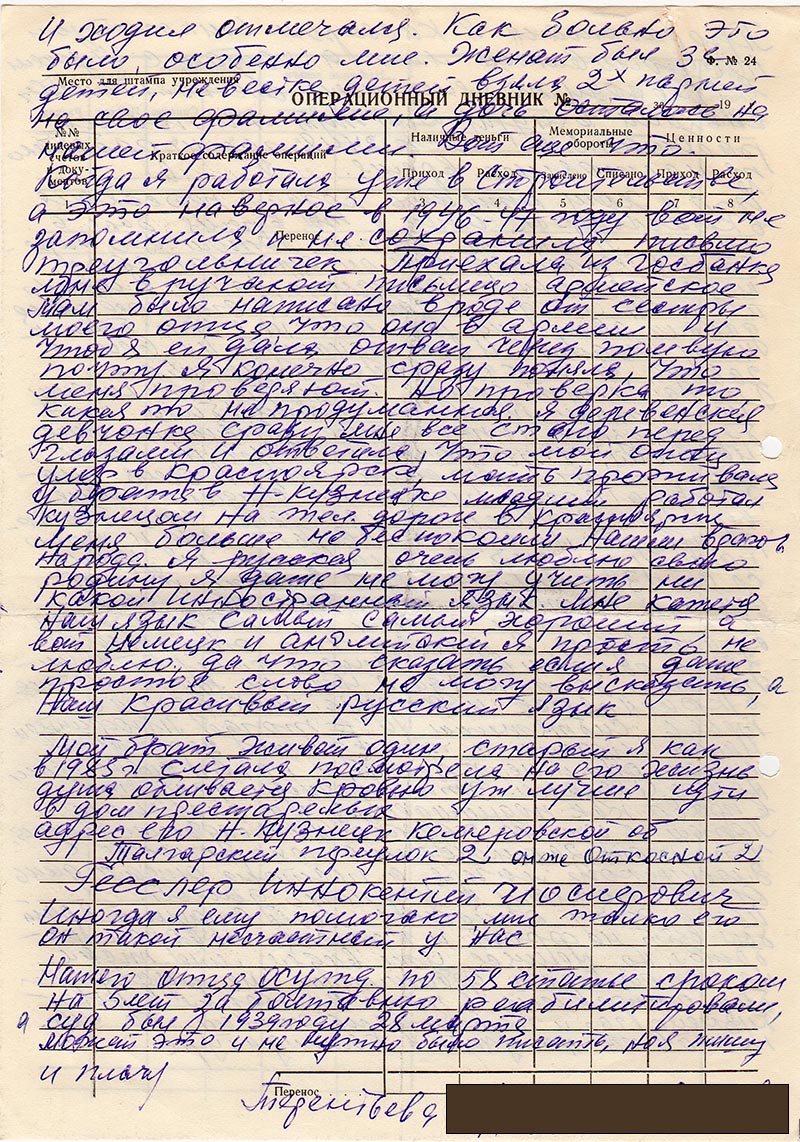 И ходил отмечался. Как больно это
было, особенно мне. Женат был
Ф. № 24
Место для штампа учреждения
детей, невестке детей было 2х парней
ОПЕРАЦИОННЫЙ ДНЕВНИК №
19
на свою фамилию, и дочь осталась на
№№ лицевых счетов и доку-ментов
Краткое содержание операций
Наличные деньги
Мемориальные обороты
Ценности
нашей фамилии. Вот еще что.
Приход Расход Зачислено Списано Приход Расход
Когда я работала уже в строительстве,
1 3 4 5 6 7 8
а это наверное в 1946-47 году вот не
Перенос
запомнила и не сохранила, письмо
треугольничек. Приехала из госбанка
мне вручают письмецо армейское
там было написано вроде от сестры
моего отца что она в армии и
чтоб я ей дала ответ через полевую
почту я конечно сразу поняла, что
меня проверяют. Но проверка то
какая то не продуманная, я деревенская
девчонка сразу мне все стало перед
глазами и ответила, что мой отец
умер в Красноярске мать проживала
у братьев Н-Кузнецке младший работал
кузнецом на жел. дороге в Красноярске
меня больше не беспокоили нашли врагов
народа. Я русская очень люблю свою
родину я даже не могу учить ни
какой иностранный язык. мне кажется
наш язык самый самый хороший а
вот немецк и английский я просто не
люблю, да что сказать если я даже
простое слово не могу высказать, а
Наш Красивый русский язык
Мой брат живой один старый я как
в 1985 г слетала посмотрела на его жизнь
душа обливается кровью уж лучше идти
в дом престарелых
адрес его Н-Кузнецк Кемеровской об
Талгарский переулок 2, он же Откосной 21
Гесслер Иннокентий Иосифович
Иногда я ему помогаю мне жалко его
он такой несчастный у нас
Нашего отца осужд. по 58 статье сроком
на 5 лет за болтовню реабилитировали,
а суд был в 1939 году 28 марта
может это и не нужно было писать, но я пишу
и плачу
Перенос
Терентьева